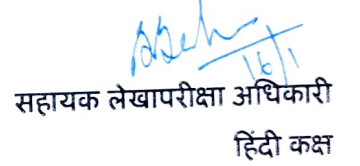 16/1
सहायक लेखापरीक्षा अधिकारी
हिंदी कक्ष